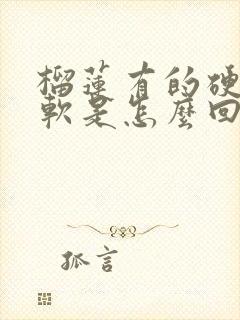 榴蓮有的硬
軟是怎麼回
孤言